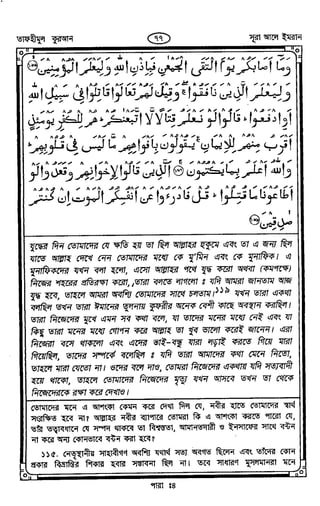 তাফহীমুল কুরআন ৭৭ সূরা আলে ইমরান
وَمَا أَصَابَكُمْ يَوْمَ الْتَقَى الْجَمْعٰنِ فَبِإِذْنِ اللّٰهِ وَلِيَعْلَمَ الْمُؤْمِنِينَ
وَلِيَعْلَمَ الَّذِينَ نَافَقُوا ۚ وَقِيلَ لَهُمْ تَعَالَوْا قَاتِلُوا فِي سَبِيلِ اللّٰهِ
أَوِ ادْفَعُوا ۖ قَالُوا لَوْ نَعْلَمُ قِتَالًا لَّاتَّبَعْنٰكُمْ ۗ هُمْ لِلْكُفْرِ يَوْمَئِذٍ
أَقْرَبُ مِنْهُمْ لِلْإِيمَانِ ۚ يَقُولُونَ بِأَفْوَاهِهِمْ مَّا لَيْسَ فِي قُلُوبِهِمْ ۗ
وَاللّٰهُ أَعْلَمُ بِمَا يَكْتُمُونَ الَّذِينَ قَالُوا لِإِخْوَانِهِمْ وَقَعَدُوا لَوْ
أَطَاعُونَا مَا قُتِلُوا ۗ قُلْ فَادْرَءُوا عَنْ أَنْفُسِكُمُ الْمَوْتَ إِنْ كُنْتُمْ
صٰدِقِينَ
যুদ্ধের দিন তোমাদের যে ক্ষতি হয় তা ছিল আল্লাহর হুকুমে এবং তা এ জন্য ছিল
যাতে আল্লাহ দেখে নেন তোমাদের মধ্যে কে মু'মিন এবং কে মুনাফিক। এ
মুনাফিকদের যখন বলা হলো, এসো আল্লাহর পথে যুদ্ধ করো অথবা (কমপক্ষে)
নিজের শহরের প্রতিরক্ষা করো, তারা বলতে লাগলো ঃ যদি আমরা জানতাম আজ
যুদ্ধ হবে, তাহলে আমরা অবশ্যি তোমাদের সাথে চলতাম। ১১৯ যখন তারা একথা
বলছিল তখন তারা ঈমানের তুলনায় কুফরীর অনেক বেশী কাছে অবস্থান করছিল।
তারা নিজেদের মুখে এমন সব কথা বলে, যা তাদের মনের মধ্যে নেই এবং যা
কিছু তারা মনের মধ্যে গোপন করে আল্লাহ তা খুব ভালো করেই জানেন। এরা
নিজেরা বসে থাকলো এবং এদের ভাই-বন্ধু যারা লড়াই করতে গিয়ে মারা
গিয়েছিল, তাদের সম্পর্কে বলেছিল ঃ যদি তারা আমাদের কথা মেনে নিতো,
তাহলে মারা যেতো না। ওদের বলে দাও, তোমরা নিজেদের একথায় যদি সত্যবাদী
হয়ে থাকো, তাহলে তোমাদের নিজেদের মৃত্যু যখন আসবে তখন তা থেকে
নিজেদেরকে রক্ষা করে দেখাও।
তোমাদের মনে এ আশংকা কেমন করে দেখা দিল যে, নবীর হাতে তোমাদের স্বার্থ
সংরক্ষিত হবে না? আল্লাহর নবীর ব্যাপারে তোমরা কি এ আশংকা করতে পারো যে,
তাঁর তত্ত্বাবধানে যে সম্পদ থাকবে তা বিশ্বস্ততা, আমানতদারী ও ইনসাফের সাথে বণ্টন
না করে অন্য কোনভাবে বণ্টন করা হবে?
১১৫. নেতৃস্থানীয় সাহাবীগণ অবশ্যি যথার্থ সত্য অবগত ছিলেন এবং তাঁদের কোন
প্রকার বিভ্রান্তির শিকার হবার সম্ভাবনা ছিল না। তবে সাধারণ মুসলমানরা মনে
পারা ঃ৪